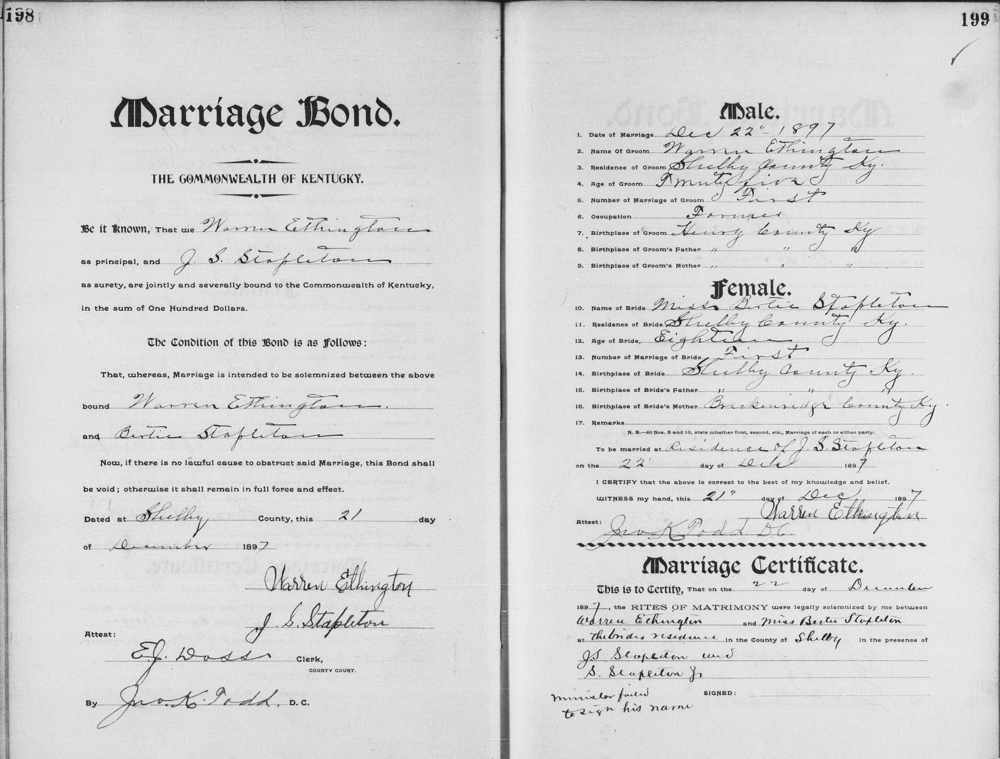 198
Marriage Bond.
THE COMMONWEALTH OF KENTUCKY.
Be it Known, That we Warren Ethington
as principal, and J. S. Stapleton
as surety, are jointly and severally bound to the Commonwealth of Kentucky,
in the sum of One Hundred Dollars.
The Condition of this Bond is as Follows:
That, whereas, Marriage is intended to be solemnized between the above
bound Warren Ethington.
and Bertie Stapleton
Now, if there is no lawful cause to obstruct said Marriage, this Bond shall
be void; otherwise it shall remain in full force and effect.
Dated at Shelby County, this 21 day
of December 1897
Warren Ethington
J. S. Stapleton
Attest:
E.J. Doss Clerk,
COUNTY COURT.
By Jno. K. Todd. D. C.
199
Male.
1. Date of Marriage Dec 22" 1897
2. Name Of Groom Warren Ethington
3. Residence of Groom Shelby County Ky.
4. Age of Groom Twenty five
5. Number of Marriage of Groom First
6. Occupation Farmer
7. Birthplace of Groom Henry County Ky
8. Birthplace of Groom's Father " " "
9. Birthplace of Groom's Mother " " "
Female.
10. Name of Bride Miss Bertie Stapleton
11. Residence of Bride Shelby County Ky.
12. Age of Bride, Eighteen
13. Number of Marriage of Bride First
14. Birthplace of Bride Shelby County Ky.
15. Birthplace of Bride's Father " " "
16. Birthplace of Bride's Mother County Ky.
17. Remarks
N. B.—At Nos. 5 and 13, state whether first, second, etc., Marriage of each or either party.
To be married at residence of J S Stapleton
on the 22" day of Dec 1897
I CERTIFY that the above is correct to the best of my knowledge and belief.
WITNESS my hand, this 21" day of Dec, 1897
Warren Ethington
Attest: Jno. K Todd DC
Marriage Certificate.
This is to Certify, That on the 22 day of December
1897, the RITES OF MATRIMONY were legally solemnized by me between
Warren Ethington and Miss Bertie Stapleton
at the brides residence in the County of Shelby in the presence of
JS Stapleton and
S. Stapleton Jr
SIGNED:
minister failed
to sign his name